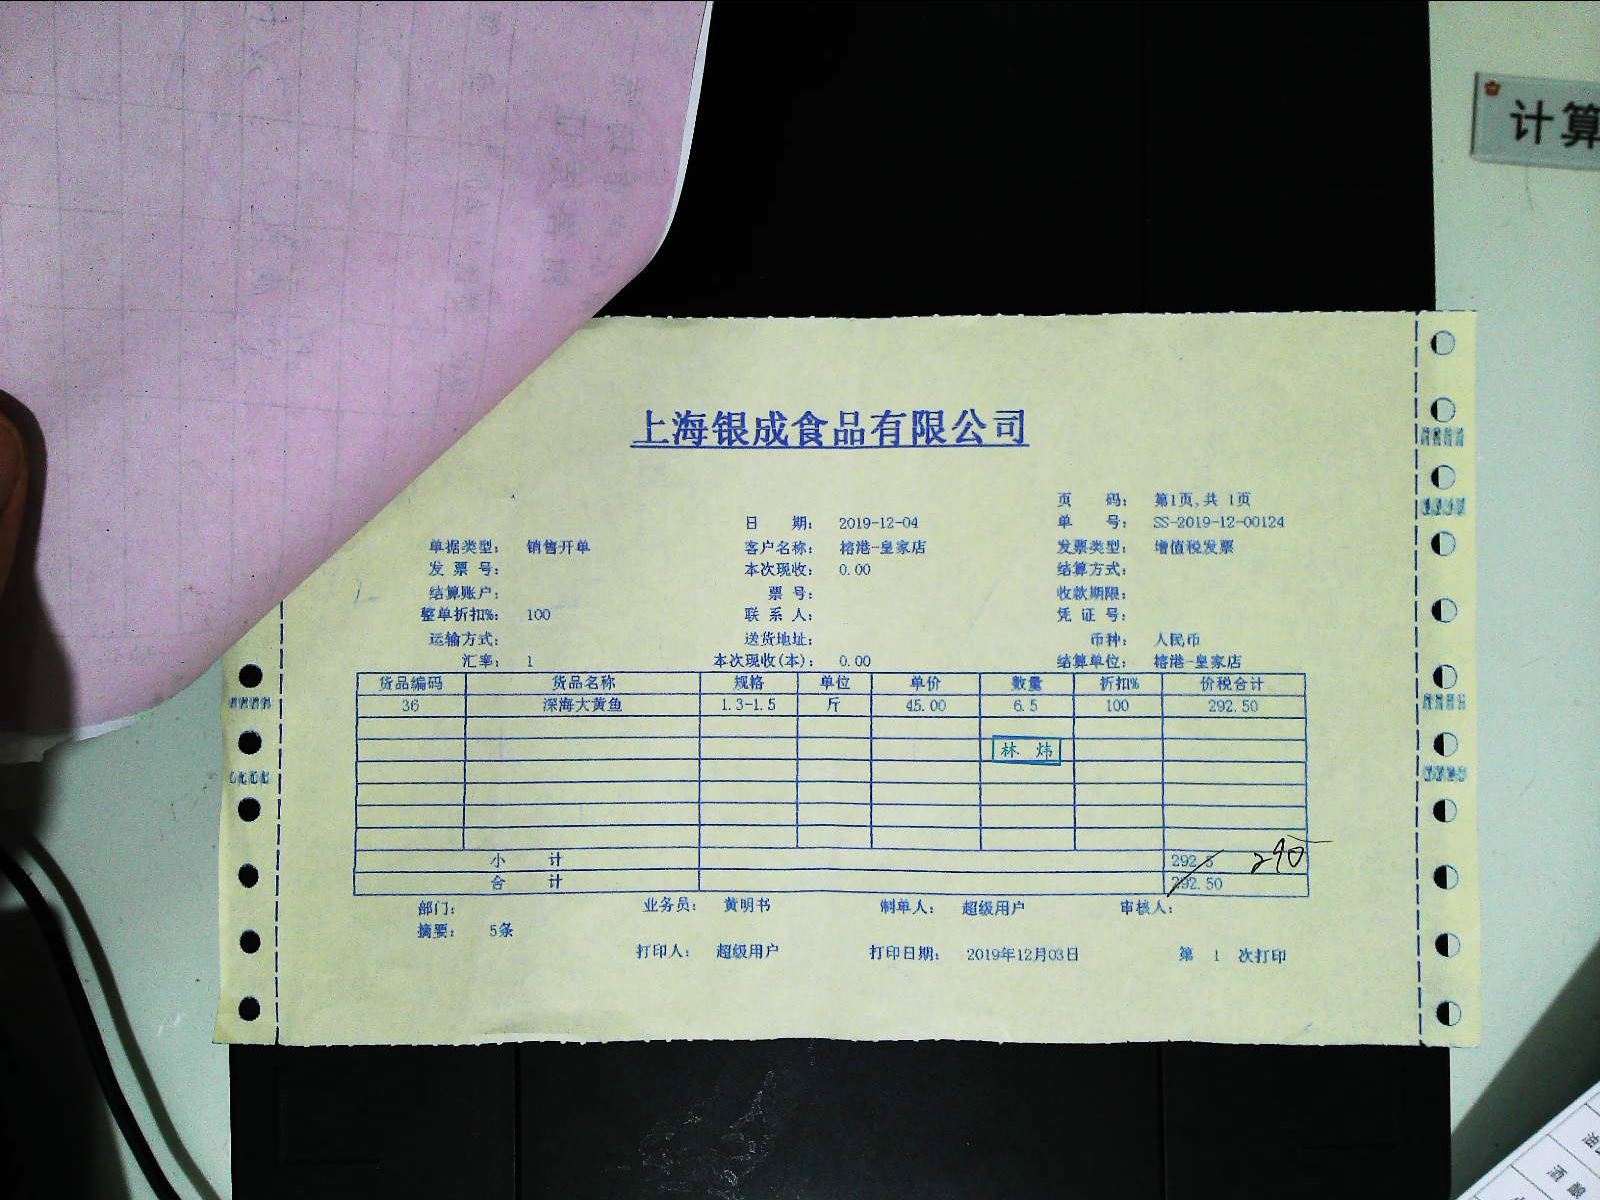 计算
上海银成食品有限公司
页 码： 第1页,共 1页
日 期： 2019-12-04 单 号： SS-2019-12-00124
单据类型： 销售开单 客户名称： 榕港-皇家店 发票类型： 增值税发票
发 票 号： 本次现收： 0.00 结算方式：
结算账户： 票 号： 收款期限：
整单折扣%： 100 联 系 人： 凭 证 号：
运输方式： 送货地址： 币种： 人民币
汇率： 1 本次现收(本)： 0.00 结算单位： 榕港-皇家店
货品编码 货品名称 规格 单位 单价 数量 折扣% 价税合计
36 深海大黄鱼 1.3-1.5 斤 45.00 6.5 100 292.50
林 炜
小 计 292.5 290
合 计 292.50
部门： 业务员： 黄明书 制单人： 超级用户 审核人：
摘要： 5条
打印人： 超级用户 打印日期： 2019年12月03日 第 1 次打印
酒